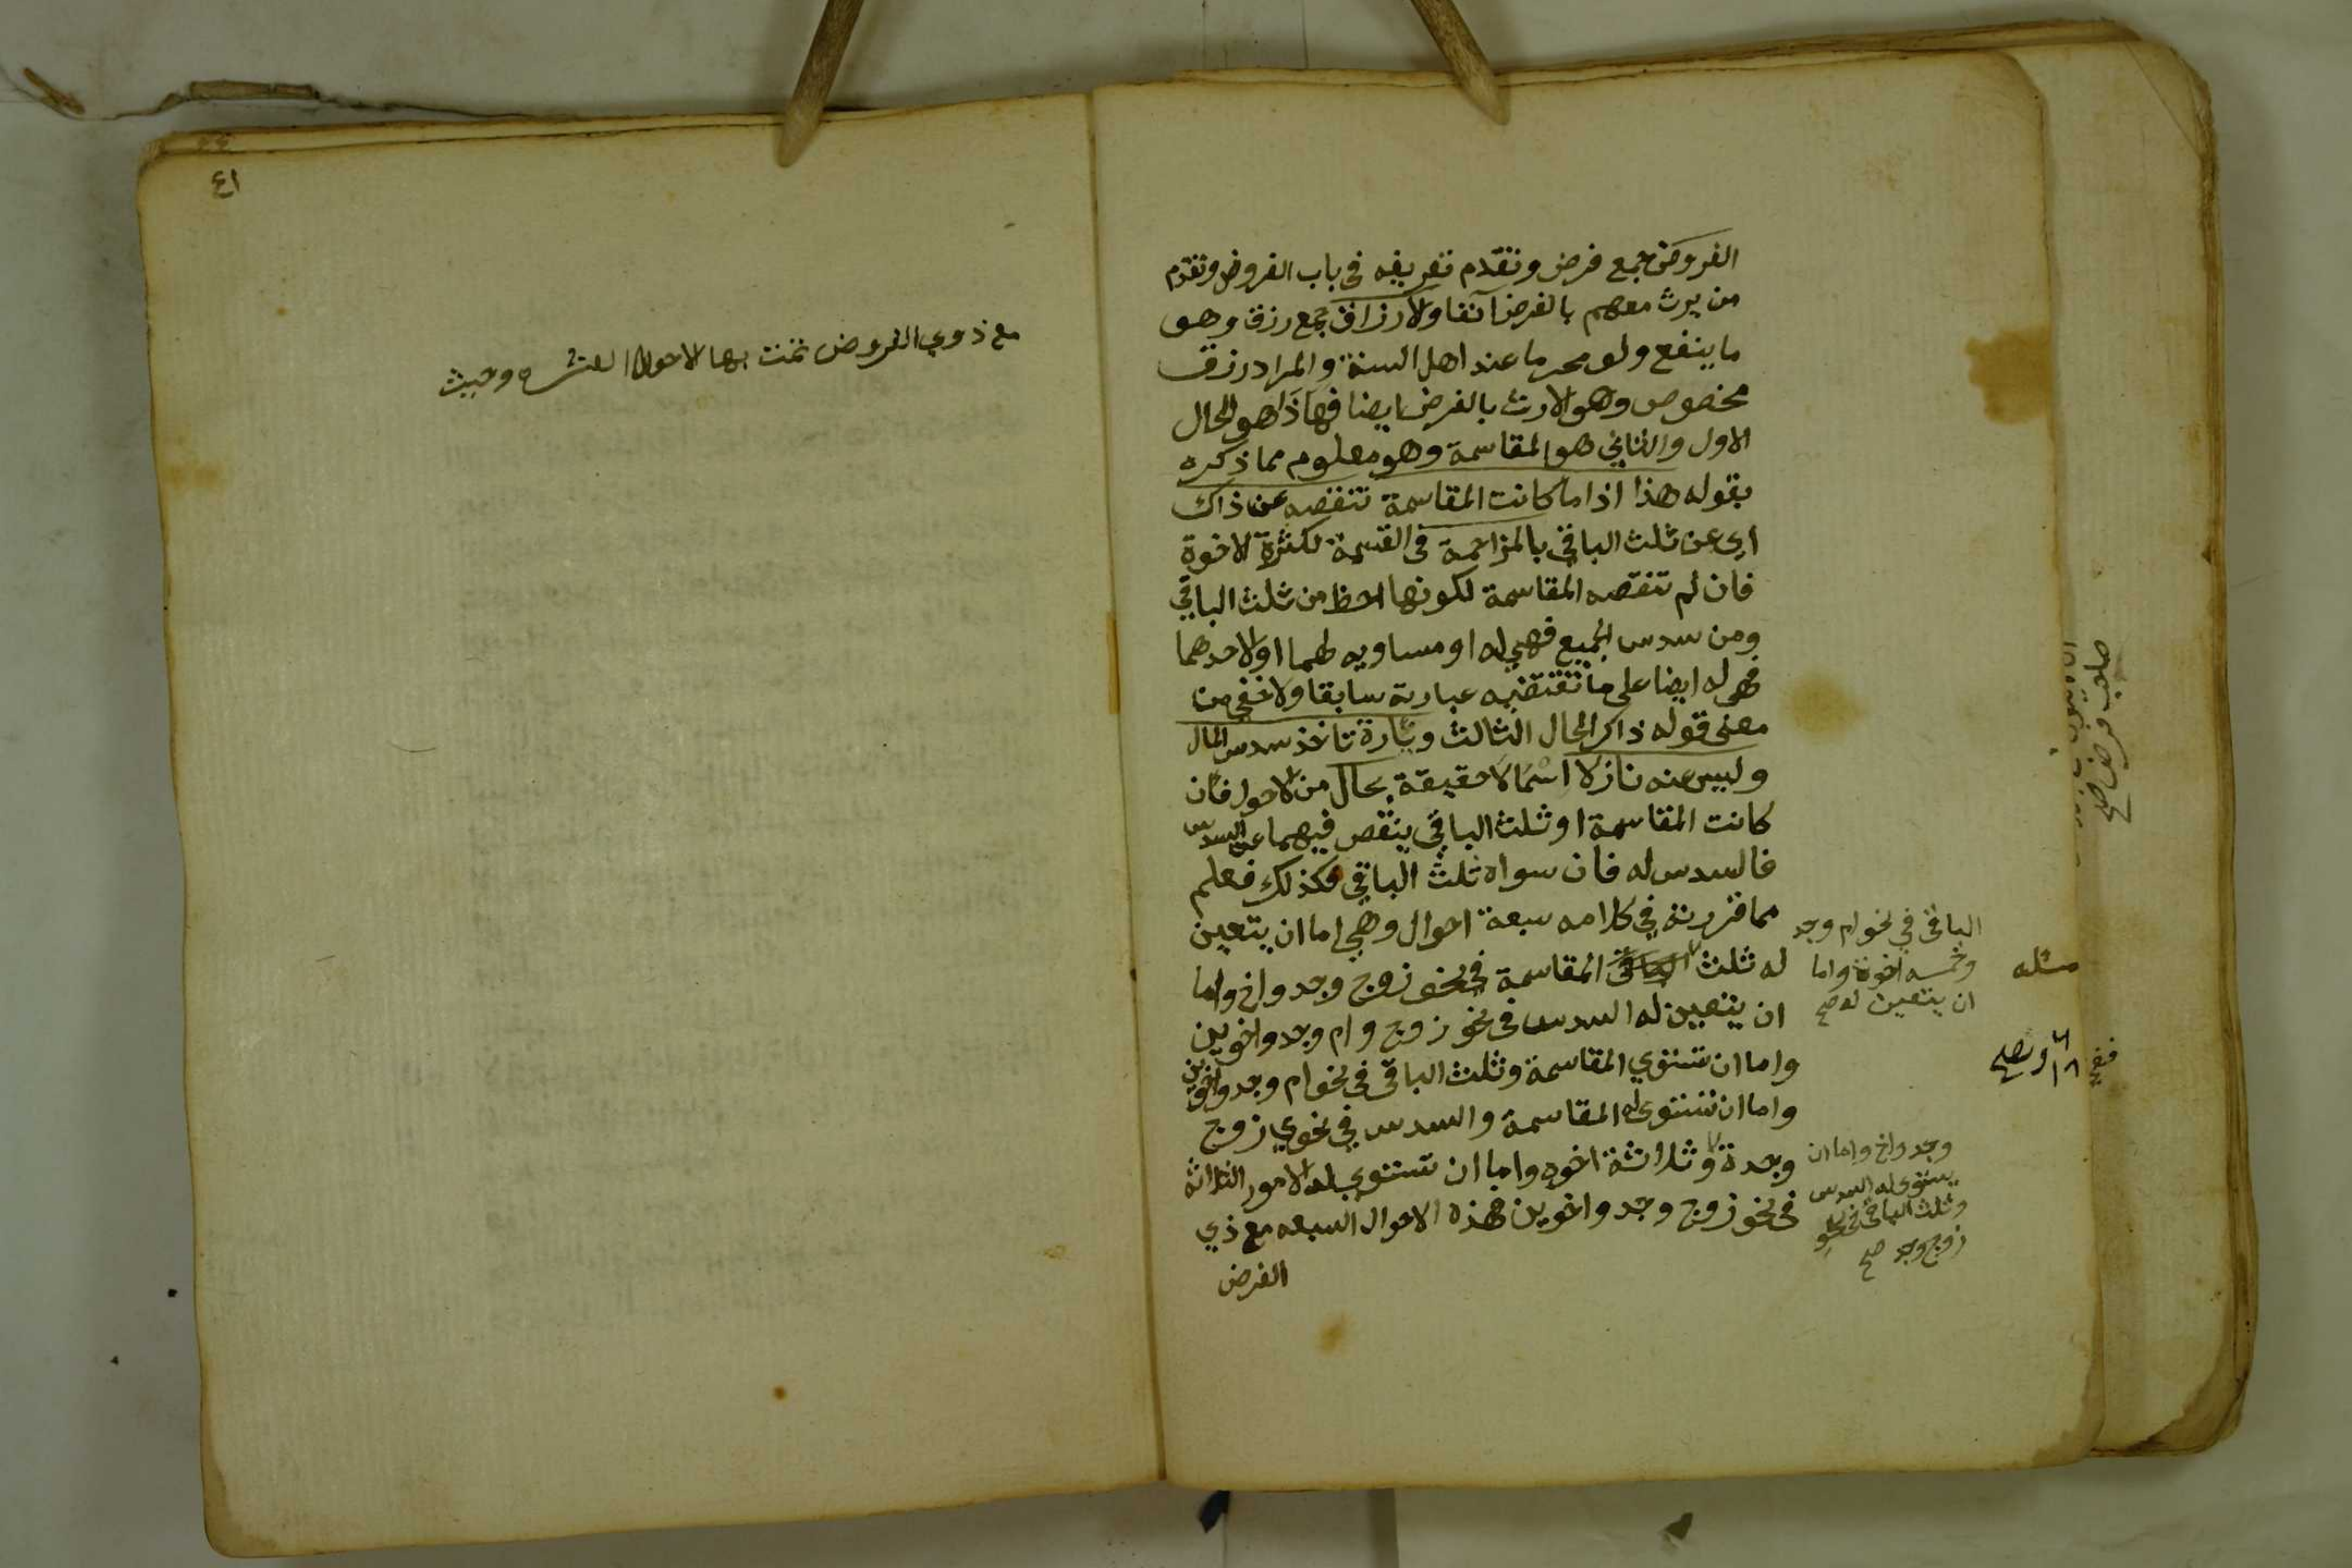 الفروض جمع فرض وتقدم تعريفه في باب الفروض وتقدم
من يرث معهم بالفرض آنفا والارزاق جمع رزق وهو
ما ينفع ولو محرما عند اهل السنة والمراد رزق
مخصوص وهو الارث بالفرض ايضا فهذا هو الحال
الاول والثاني هو المقاسمة وهو معلوم مما ذكره
بقوله هذا اذا ما كانت المقاسمة تنقصه عن ذاك
اي عن ثلث الباقي بالمزاحمة في القسمة لكثرة الاخوة
فان لم تنقصه المقاسمة لكونها احظ من ثلث الباقي
ومن سدس الجميع فهي له او مساويه لهما او لاحدهما
فهي له ايضا على ما تقتضيه عبارته سابقا ولاخفي من
معنى قوله ذاكر الحال الثالث وتارة تاخذ سدس المال
وليس عنه نازلا اسما لا حقيقة بحال من الاحوال فان
كانت المقاسمة او ثلث الباقي ينقص فيهما عن السدس
فالسدس له فان سواه ثلث الباقي فكذلك فعلم
مما قررته في كلامه سبعة احوال وهي اما ان يتعين
له ثلث المقاسمة في نحو زوج وجد واخ واما
ان يتعين له السدس في نحو زوج وام وجد واخوين
واما ان تستوي المقاسمة وثلث الباقي في نحو ام وجد واخوين
واما ان تستوي له المقاسمة والسدس في نحوي زوج
وجدة وثلاثة اخوه واما ان تستوي له الامور الثلاثه
في نحو زوج وجد واخوين فهذه الاحوال السبعه مع ذي
الفرض
الباقي في نحو ام وجد
وخمسه اخوة واما
ان يتعين له صح
مثله
وجد واخ واما ان
يستوي له السدس
وثلث الباقي في نحو
زوج وجد صح
٤١
مع ذوي الفروض تمت بها الاحوال العشره وحيث